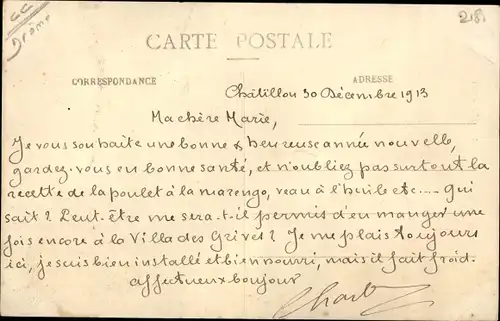 Drôme
218
CARTE POSTALE
CORRESPONDANCE
ADRESSE
Châtillon 30 Décembre 1913
Ma chère Marie,
Je vous souhaite une bonne & heureuse année nouvelle,
gardez-vous en bonne santé, et n'oubliez pas surtout la
recette de la poulet à la marengo, veau à l'huile etc.... qui
sait? Peut-être me sera-t-il permis d'en manger une
fois encore à la Villa des Grives? Je me plais toujours
ici, je suis bien installé et bien nourri, mais il fait froid.
affectueux bonjour